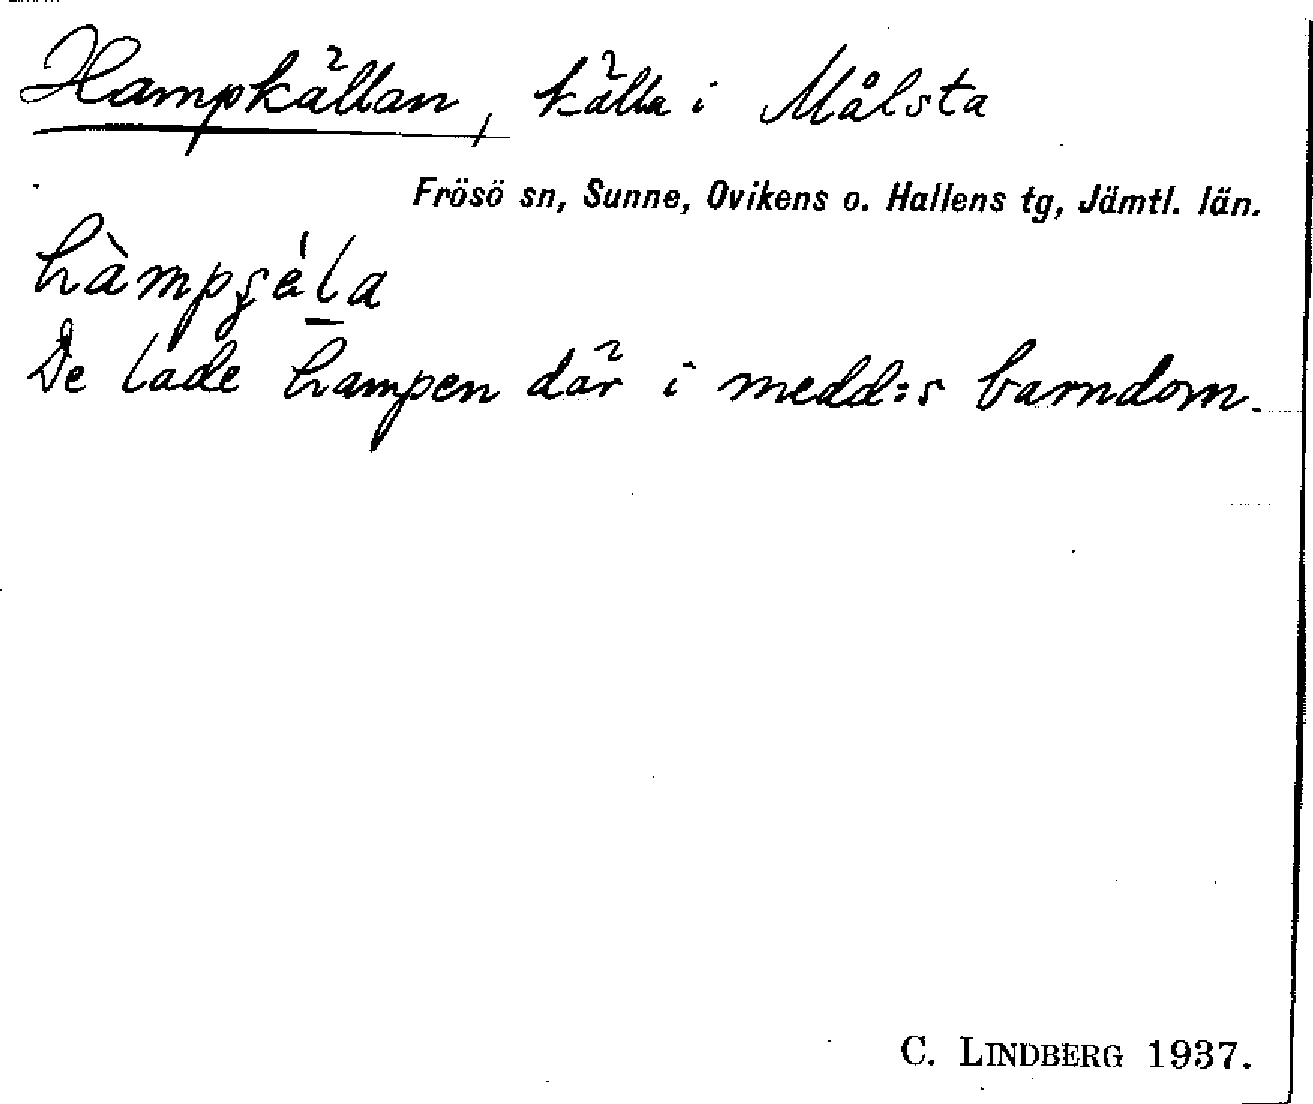 Hampkällan, källa i Målsta
Frösö sn, Sunne, Ovikens o. Hallens tg, Jämtl. län.
hàmpʂéla
De lade hampen där i medd:s barndom.
C. LINDBERG 1937.